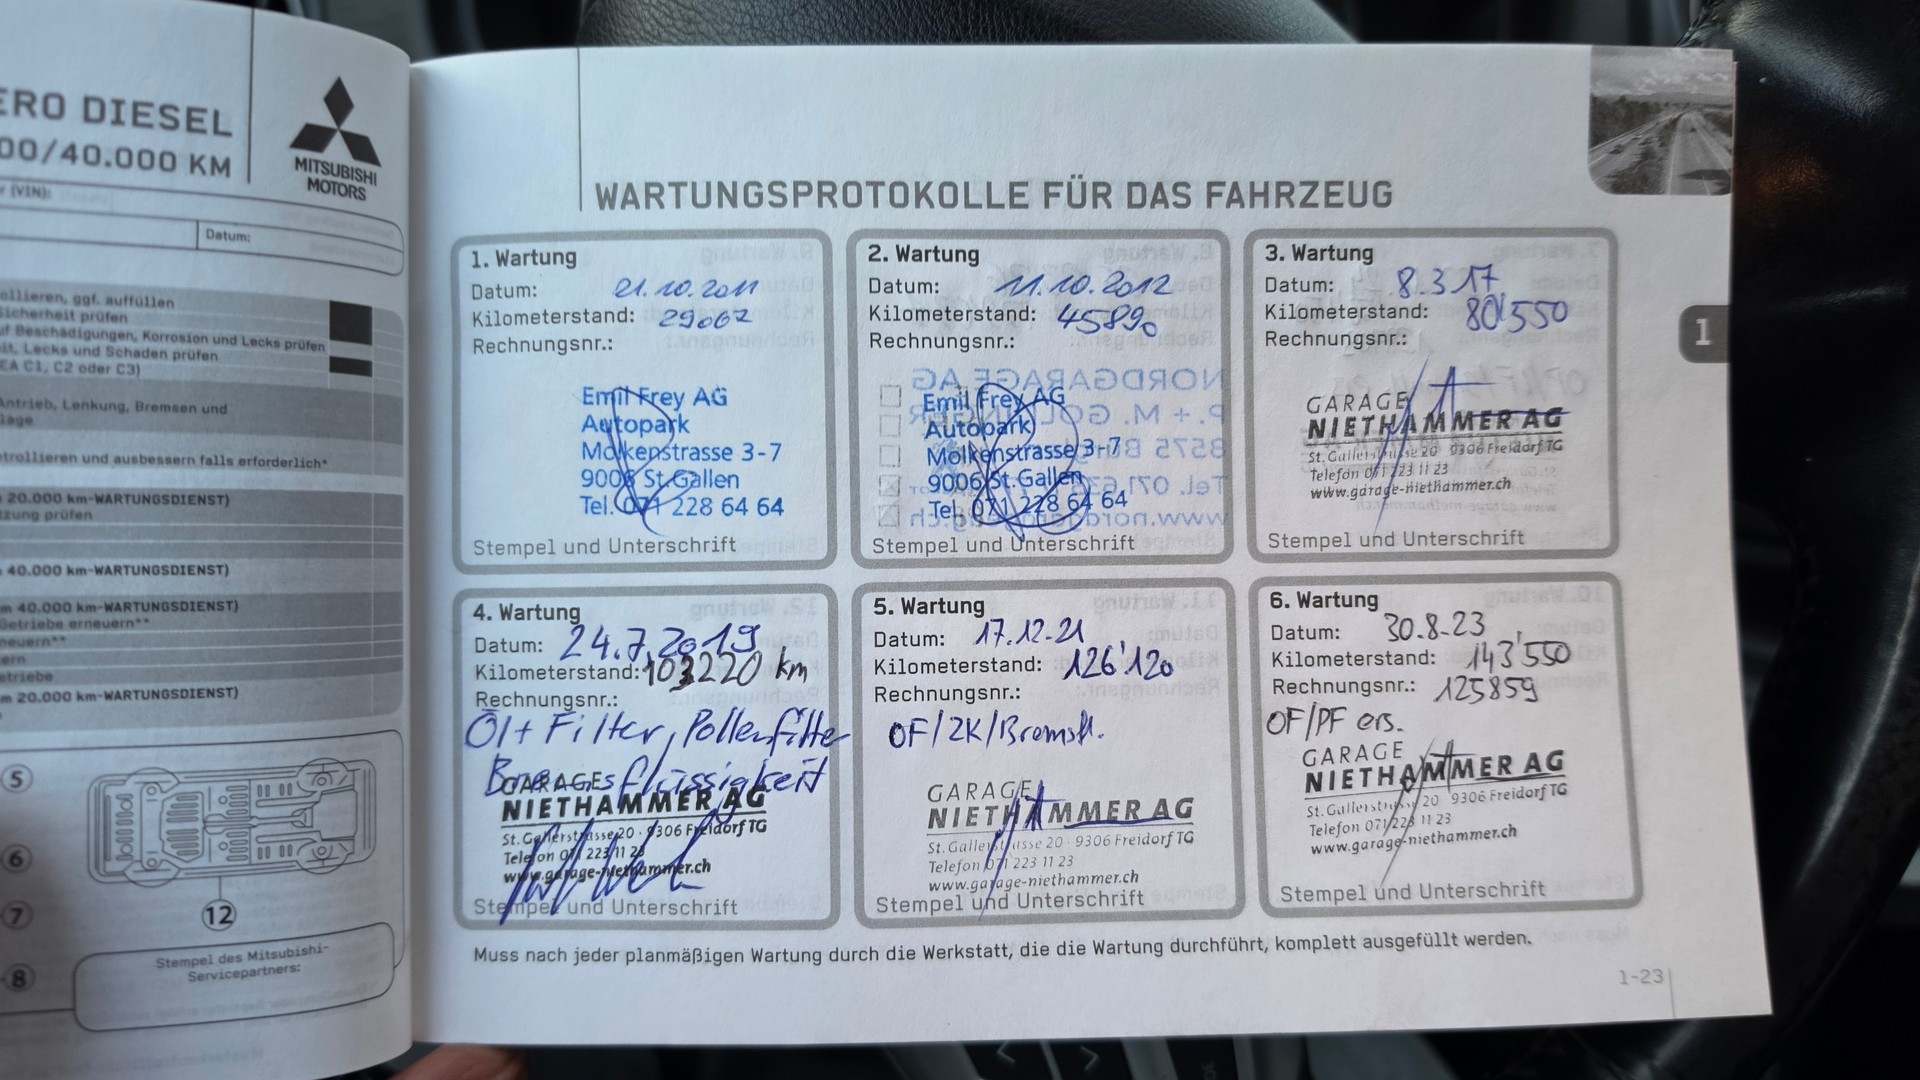 ERO DIESEL
00/40.000 KM
MITSUBISHI
MOTORS
(VIN):
Datum:
ollieren, ggf. auffüllen
sicherheit prüfen
uf Beschädigungen, Korrosion und Lecks prüfen
it, Lecks und Schaden prüfen
EA C1, C2 oder C3)
Antrieb, Lenkung, Bremsen und
lage
ntrollieren und ausbessern falls erforderlich*
20.000 km-WARTUNGSDIENST)
zung prüfen
40.000 km-WARTUNGSDIENST)
m 40.000 km-WARTUNGSDIENST)
Getriebe erneuern**
neuern**
ern
etriebe
m 20.000 km-WARTUNGSDIENST)
5
6
7
8
12
Stempel des Mitsubishi-
Servicepartners:
WARTUNGSPROTOKOLLE FÜR DAS FAHRZEUG
1
1. Wartung
Datum: 21.10.2011
Kilometerstand: 29007
Rechnungsnr.:
Emil Frey AG
Autopark
Molkenstrasse 3-7
9006 St.Gallen
Tel. 071 228 64 64
Stempel und Unterschrift
2. Wartung
Datum: 11.10.2012
Kilometerstand: 45890
Rechnungsnr.:
Emil Frey AG
Autopark
Molkenstrasse 3-7
9006 St.Gallen
Tel. 071 228 64 64
Stempel und Unterschrift
3. Wartung
Datum: 8.3.17
Kilometerstand: 80'550
Rechnungsnr.:
GARAGE
NIETHAMMER AG
St. Gallerstrasse 20 9306 Freidorf TG
Telefon 071 223 11 23
www.garage-niethammer.ch
Stempel und Unterschrift
4. Wartung
Datum: 24.7.2019
Kilometerstand: 103220 km
Rechnungsnr.:
Öl + Filter, Pollenfilter
Bremsflüssigkeit
GARAGE
NIETHAMMER AG
St. Gallerstrasse 20 · 9306 Freidorf TG
Telefon 071 223 11 23
www.garage-niethammer.ch
Stempel und Unterschrift
5. Wartung
Datum: 17.12.21
Kilometerstand: 126'120
Rechnungsnr.:
OF/ZK/Bremsfl.
GARAGE
NIETHAMMER AG
St. Gallerstrasse 20 · 9306 Freidorf TG
Telefon 071 223 11 23
www.garage-niethammer.ch
Stempel und Unterschrift
6. Wartung
Datum: 30.8.23
Kilometerstand: 143'550
Rechnungsnr.: 125859
OF/PF ers.
GARAGE
NIETHAMMER AG
St. Gallerstrasse 20 9306 Freidorf TG
Telefon 071 223 11 23
www.garage-niethammer.ch
Stempel und Unterschrift
Muss nach jeder planmäßigen Wartung durch die Werkstatt, die die Wartung durchführt, komplett ausgefüllt werden.
1-23